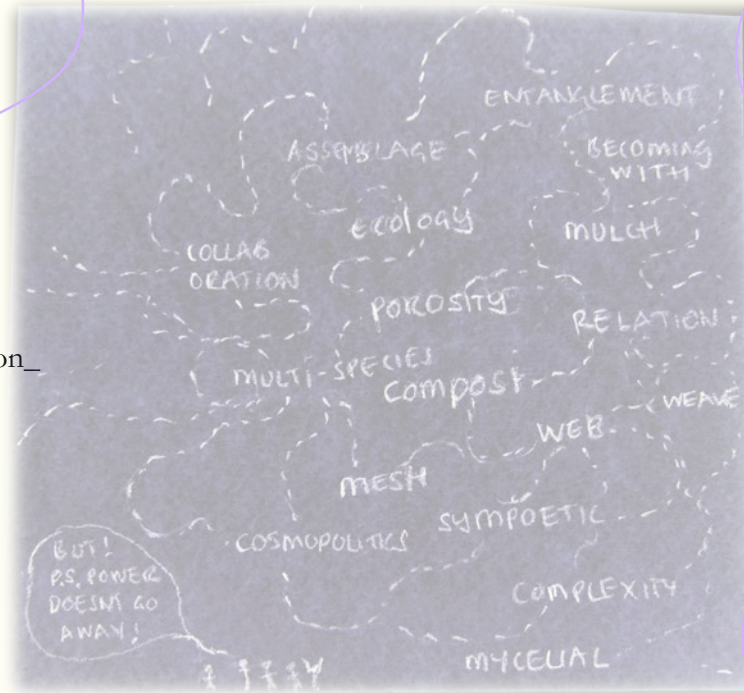 ENTANGLEMENT
ASSEMBLAGE
BECOMING
WITH
ECOLOGY
MULCH
COLLAB
ORATION
POROSITY
RELATION
on_
MULTI-SPECIES
COMPOST
WEAVE
WEB
MESH
SYMPOETIC
COSMOPOLITICS
BUT!
P.S. POWER
DOESNT GO
AWAY!
COMPLEXITY
MYCELIAL